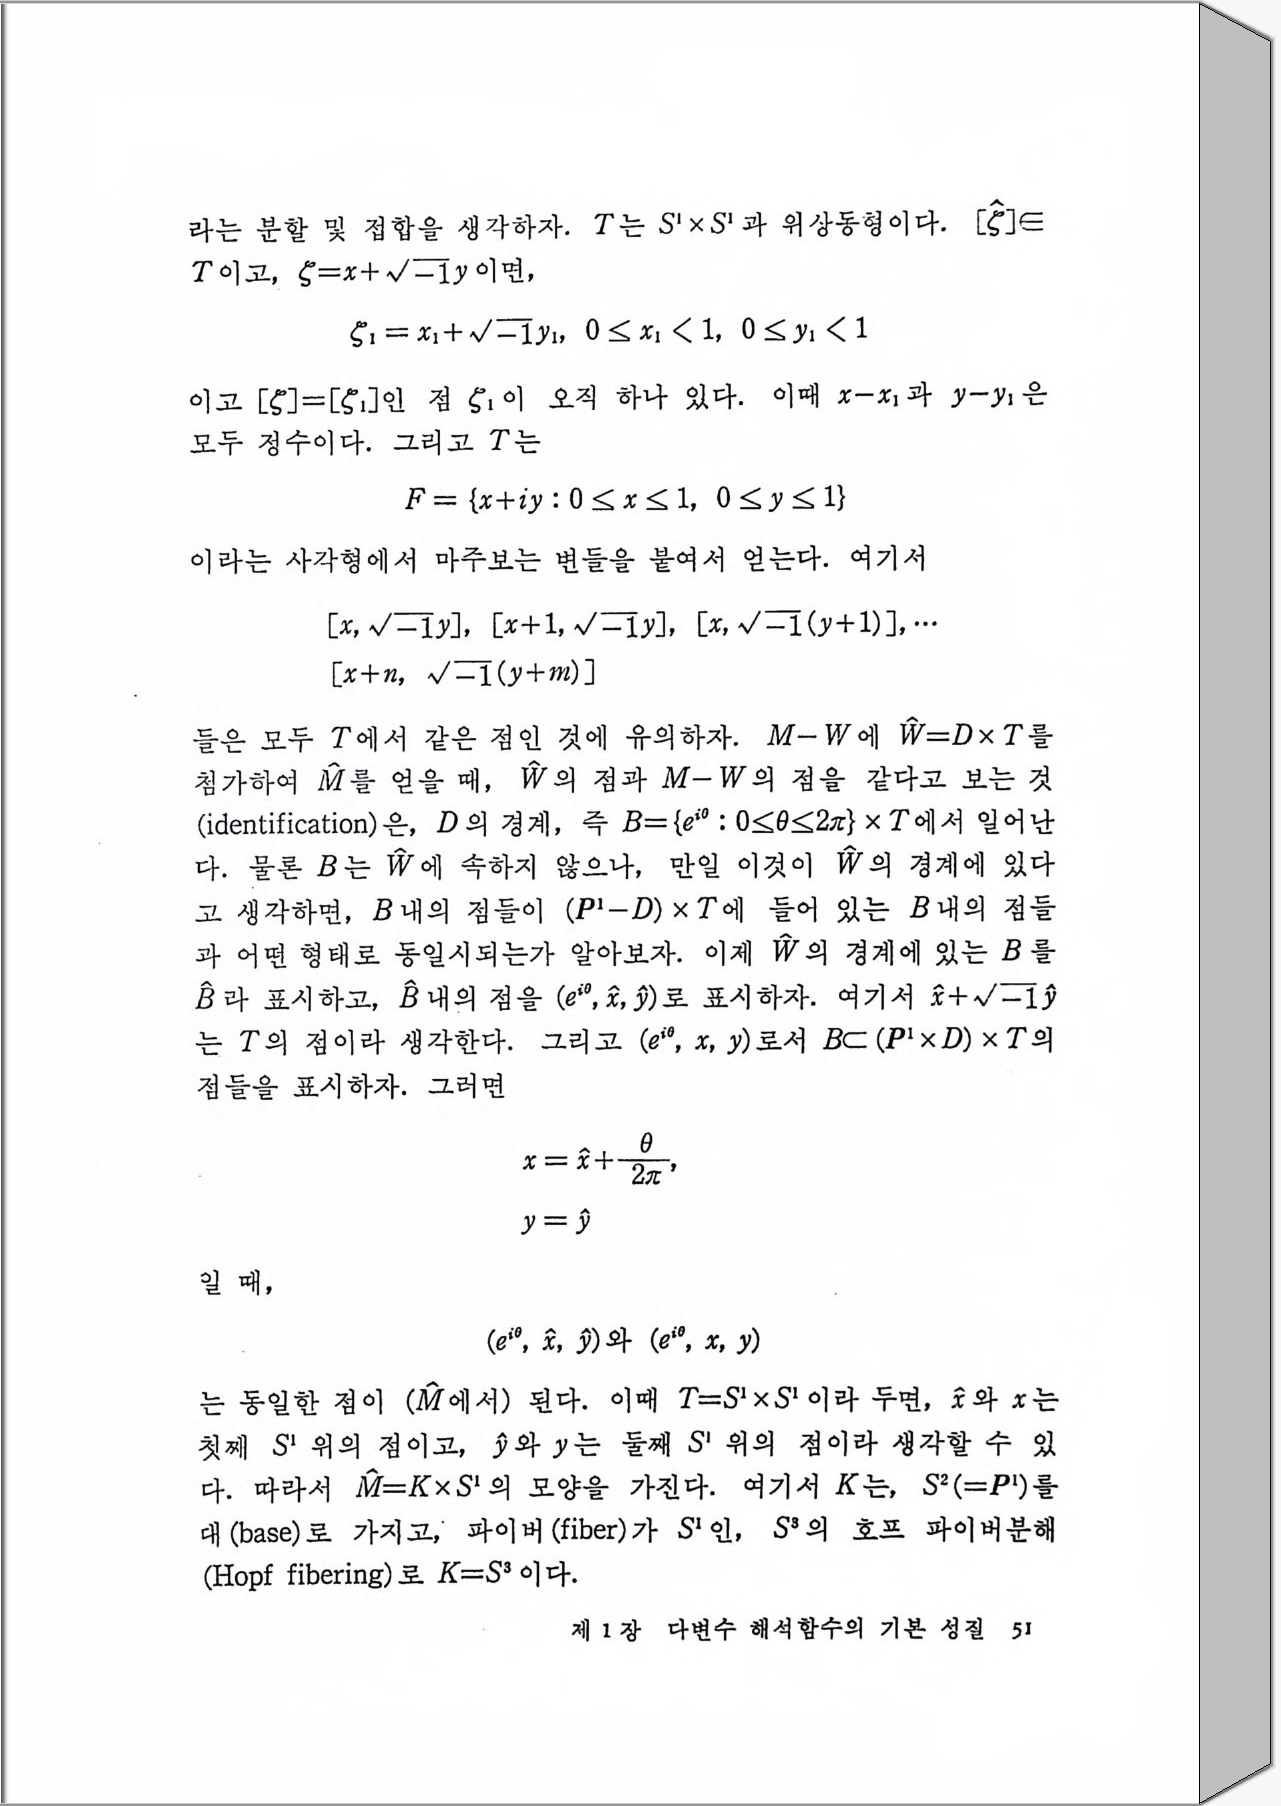 라는 분할 및 접합을 생각하자. T는 S¹×S¹과 위상동형이다. [ζ̂]∈
T이고, ζ=x+√−1y이면,
ζ₁=x₁+√−1y₁, 0≤x₁<1, 0≤y₁<1
이고 [ζ]=[ζ₁]인 점 ζ₁이 오직 하나 있다. 이때 x−x₁과 y−y₁은
모두 정수이다. 그리고 T는
F={x+iy : 0≤x≤1, 0≤y≤1}
이라는 사각형에서 마주보는 변들을 붙여서 얻는다. 여기서
[x, √−1y], [x+1, √−1y], [x, √−1(y+1)], …
[x+n, √−1(y+m)]
들은 모두 T에서 같은 점인 것에 유의하자. M−W에 Ŵ=D×T를
첨가하여 M̂를 얻을 때, Ŵ의 점과 M−W의 점을 같다고 보는 것
(identification)은, D의 경계, 즉 B={e^{iθ} : 0≤θ≤2π}×T에서 일어난
다. 물론 B는 Ŵ에 속하지 않으나, 만일 이것이 Ŵ의 경계에 있다
고 생각하면, B내의 점들이 (P¹−D)×T에 들어 있는 B내의 점들
과 어떤 형태로 동일시되는가 알아보자. 이제 Ŵ의 경계에 있는 B를
B̂라 표시하고, B̂내의 점을 (e^{iθ}, x̂, ŷ)로 표시하자. 여기서 x̂+√−1ŷ
는 T의 점이라 생각한다. 그리고 (e^{iθ}, x, y)로서 B⊂(P¹×D)×T의
점들을 표시하자. 그러면
x=x̂+θ/2π,
y=ŷ
일 때,
(e^{iθ}, x̂, ŷ)와 (e^{iθ}, x, y)
는 동일한 점이 (M̂에서) 된다. 이때 T=S¹×S¹이라 두면, x̂와 x는
첫째 S¹ 위의 점이고, ŷ와 y는 둘째 S¹ 위의 점이라 생각할 수 있
다. 따라서 M̂=K×S¹의 모양을 가진다. 여기서 K는, S²(=P¹)를
대(base)로 가지고, 파이버(fiber)가 S¹인, S³의 호프 파이버분해
(Hopf fibering)로 K=S³이다.
제 1 장 다변수 해석함수의 기본 성질 51